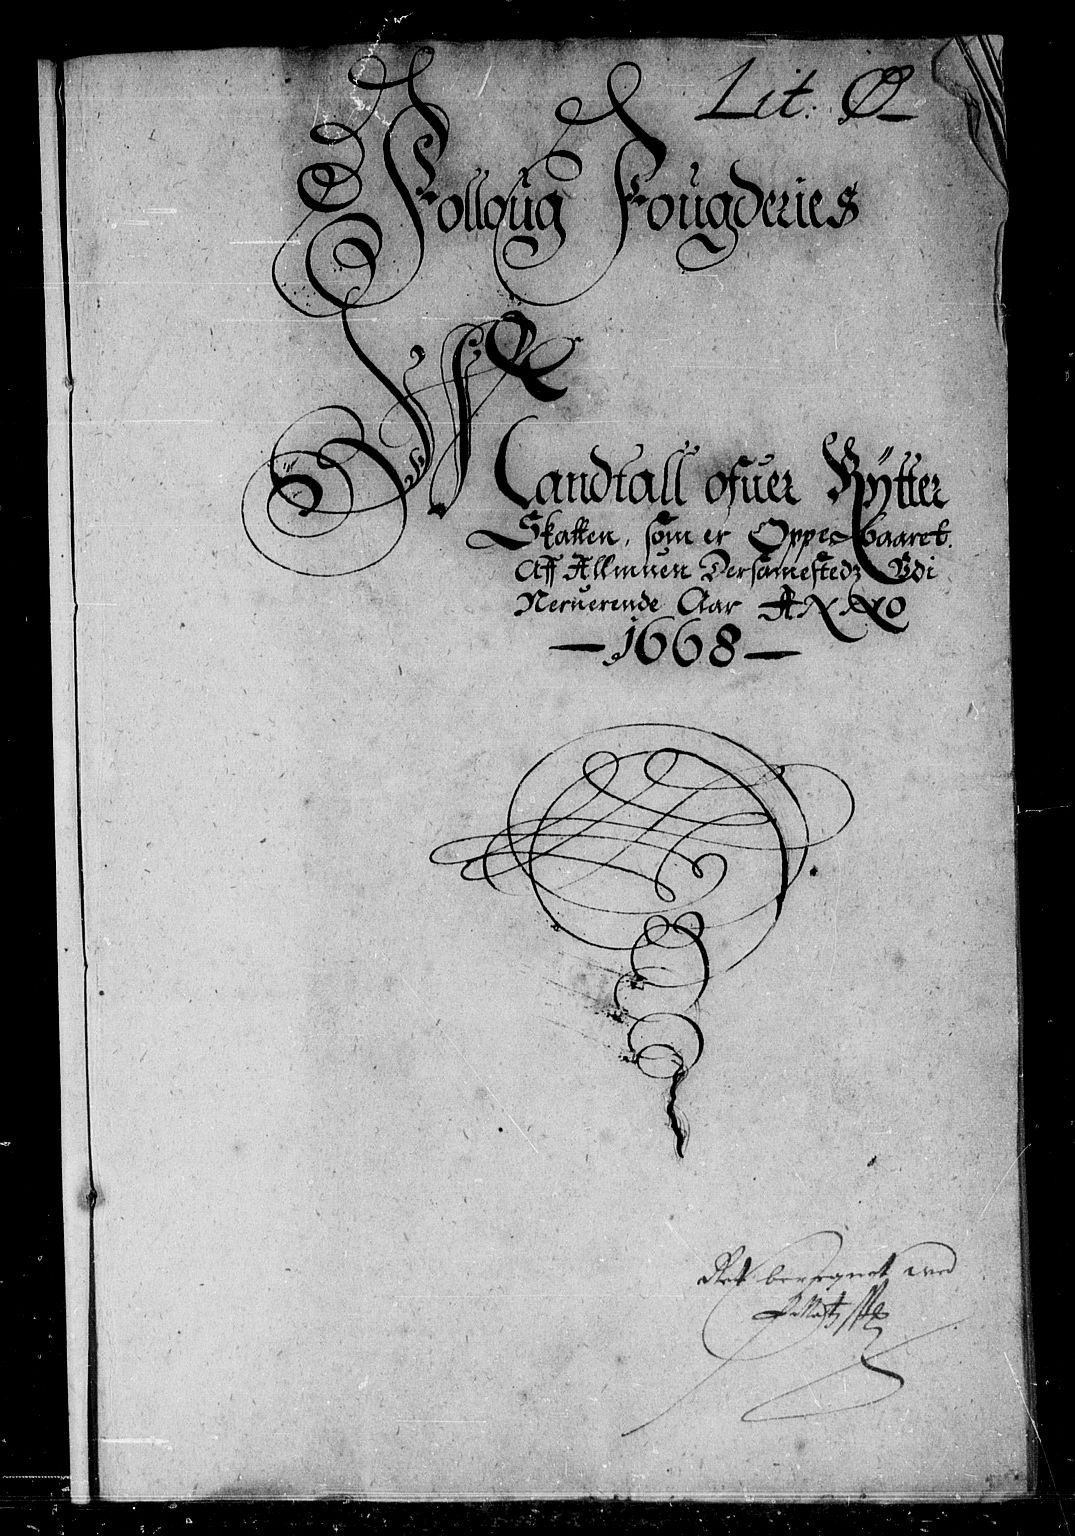 Lit: Ø
Folloug Fougderies
Mandtall ofuer Rytter
Skatten, som er Oppe baaret.
Aff Allmuen Dersamestedz Vdi
Neruerende Aar ANNO
1668
Ret beregnet ved